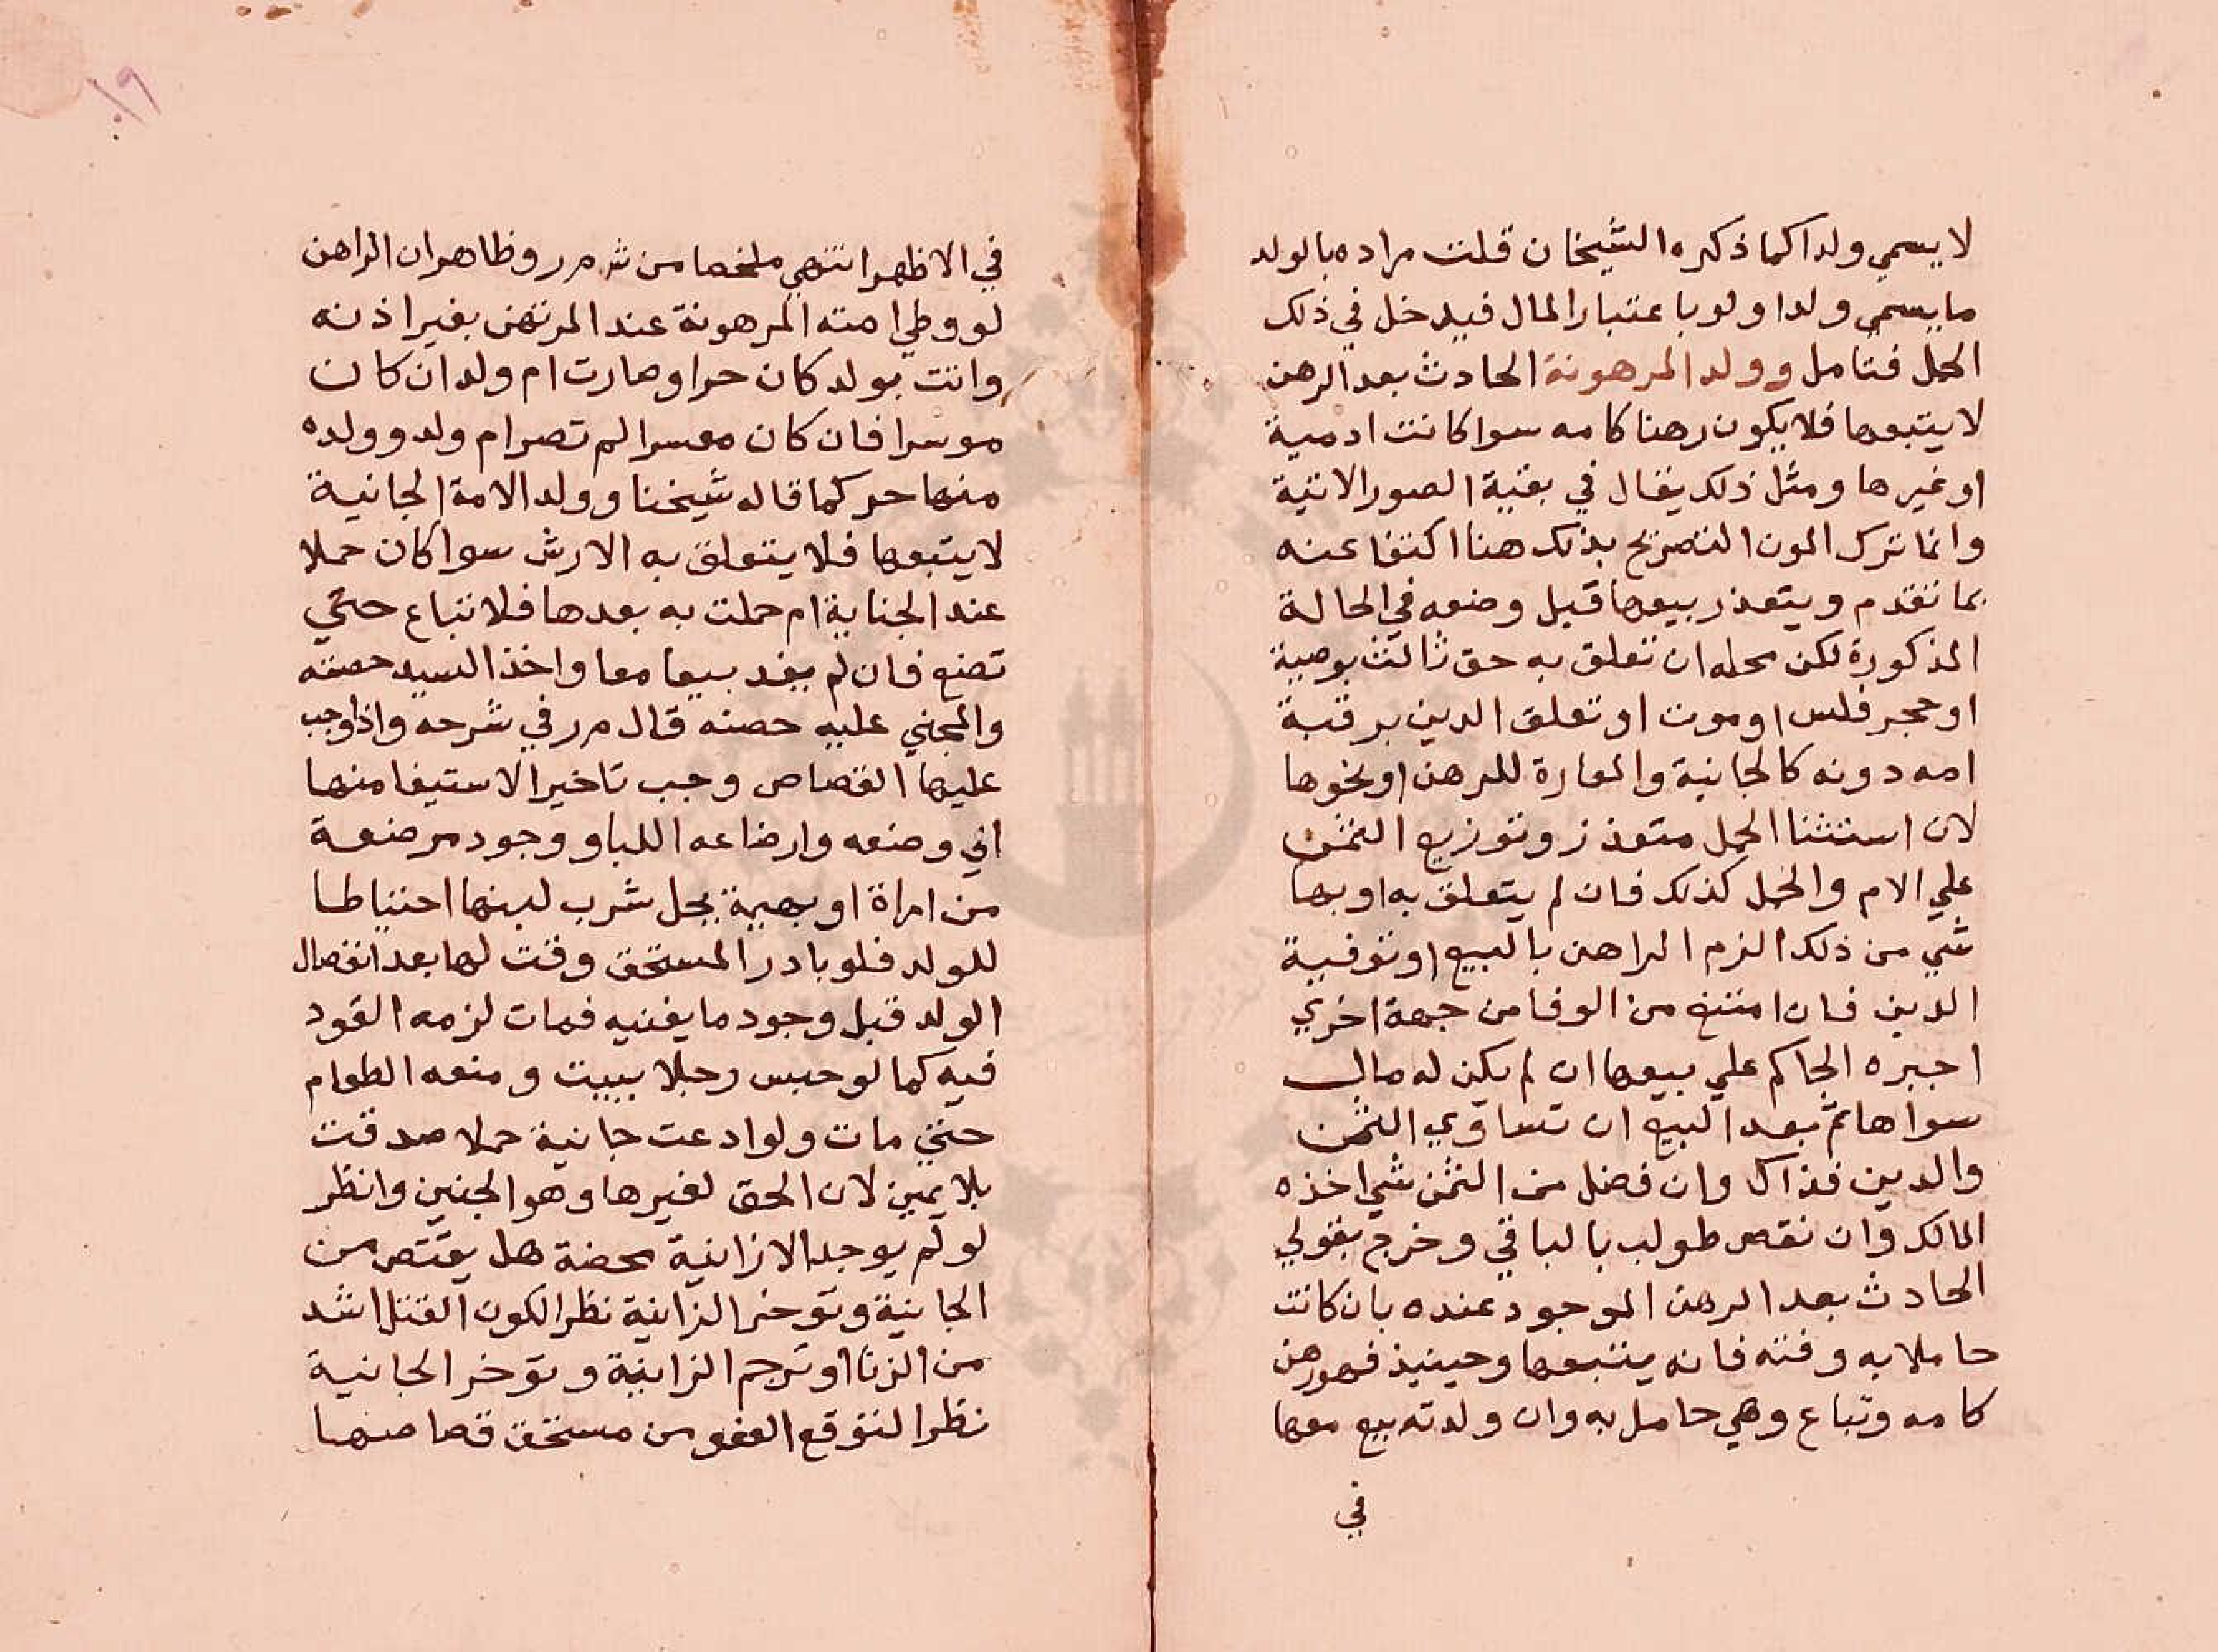 لا يسمي ولدا كما ذكره الشيخان قلت مراده بالولد
ما يسمي ولدا ولو باعتبار المال فيدخل في ذلك
الحمل فتامل وولد المرهونة الحادث بعد الرهن
لا يتبعها فلا يكون رهنا كامه سوا كانت ادمية
او غيرها ومثل ذلك يقال في بقية الصور الاتية
وانما ترك المون التصريح بذلك هنا اكتفا عنه
بما تقدم ويتعذر بيعها قبل وضعه في الحالة
المذكورة لكن محله ان تعلق به حق ثالث بوصية
او حجر فلس او موت او تعلق الدين برقبة
امه دونه كالجانية والمعارة للرهن او نحوها
لان استثنا الحمل متعذر وتوزيع الثمن
علي الام والحمل كذلك فان لم يتعلق به او بها
شي من ذلك الزم الراهن بالبيع او توفية
الدين فان امتنع من الوفا من جهة اخري
اجبره الحاكم علي بيعها ان لم يكن له مال
سواها ثم بعد البيع ان تساوي الثمن
والدين فذاك وان فضل من الثمن شي اخذه
المالك وان نقص طولب بالباقي وخرج بقولي
الحادث بعد الرهن الموجود عنده بان كانت
حاملا به وقته فانه يتبعها وحينيذ فهو رهن
كامه وتباع وهي حامل به وان ولدته بيع معها
في
١٩
في الاظهر انتهي ملخصا من شرح م ر وظاهر ان الراهن
لو وطي امته المرهونة عند المرتهن بغير اذنه
واتت بولد كان حرا وصارت ام ولد ان كان
موسرا فان كان معسرا لم تصر ام ولد وولده
منها حر كما قاله شيخنا وولد الامة الجانية
لا يتبعها فلا يتعلق به الارش سوا كان حملا
عند الجناية ام حملت به بعدها فلا تباع حتي
تضع فان لم يفد بيعا معا واخذ السيد حصته
والمجني عليه حصته قال م ر في شرحه واذا وجب
عليها القصاص وجب تاخير الاستيفا منها
الي وضعه وارضاعه اللبا ووجود مرضعة
من امراة او بهيمة يحل شرب لبنها احتياطا
للولد فلو بادر المستحق وقت لها بعد انفصال
الولد قبل وجود ما يغنيه فمات لزمه القود
فيه كما لو حبس رجلا ببيت ومنعه الطعام
حتي مات ولو ادعت جانية حملا صدقت
بلا يمين لان الحق لغيرها وهو الجنين وانظر
لو لم يوجد الا زانية محصنة هل يقتص من
الجانية وتوخر الزانية نظرا لكون القتل اشد
من الزنا او ترجم الزانية وتوخر الجانية
نظرا لتوقع العفو من مستحق قصاصها